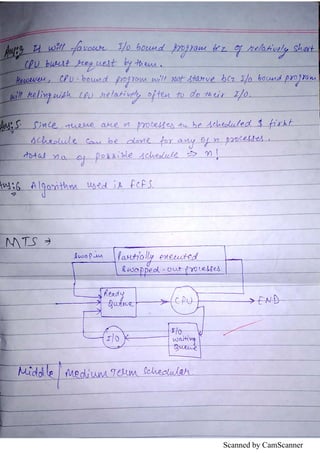 Ans:3 It will favour I/O bound program bcz of relatively short
CPU burst request by them.
However, CPU-bound program will not starve bcz I/O bound program
will relinquish CPU relatively often to do their I/O.
Ans:5 Since there are n processes to be scheduled & first
schedule can be done for any of n processes.
total no. of possible schedule => n!
Ans:6 Algorithm used is FCFS.
MTS →
Swap in
Partially executed
swapped-out processes
Ready
Queue
CPU
END
I/O
I/O
waiting
Queue
Middle / Medium Term Scheduler
Scanned by CamScanner